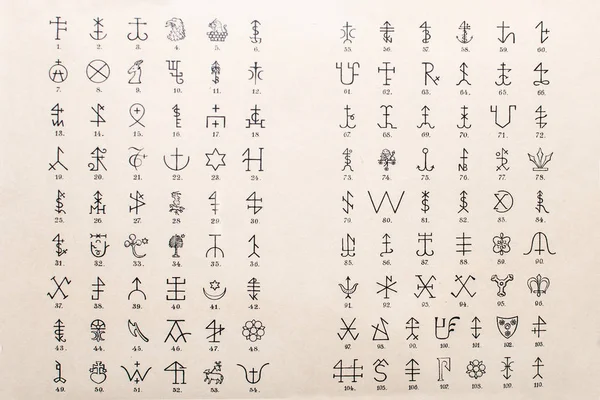 1. 2. 3. 4. 5. 6.
7. 8. 9. 10. 11. 12.
13. 14. 15. 16. 17. 18.
19. 20. 21. 22. 23. 24.
25. 26. 27. 28. 29. 30.
31. 32. 33. 34. 35. 36.
37. 38. 39. 40. 41. 42.
43. 44. 45. 46. 47. 48.
49. 50. 51. 52. 53. 54.
55. 56. 57. 58. 59. 60.
61. 62. 63. 64. 65. 66.
67. 68. 69. 70. 71. 72.
73. 74. 75. 76. 77. 78.
79. 80. 81. 82. 83. 84.
85. 86. 87. 88. 89. 90.
91. 92. 93. 94. 95. 96.
97. 98. 99. 100. 101. 102. 103.
104. 105. 106. 107. 108. 109. 110.